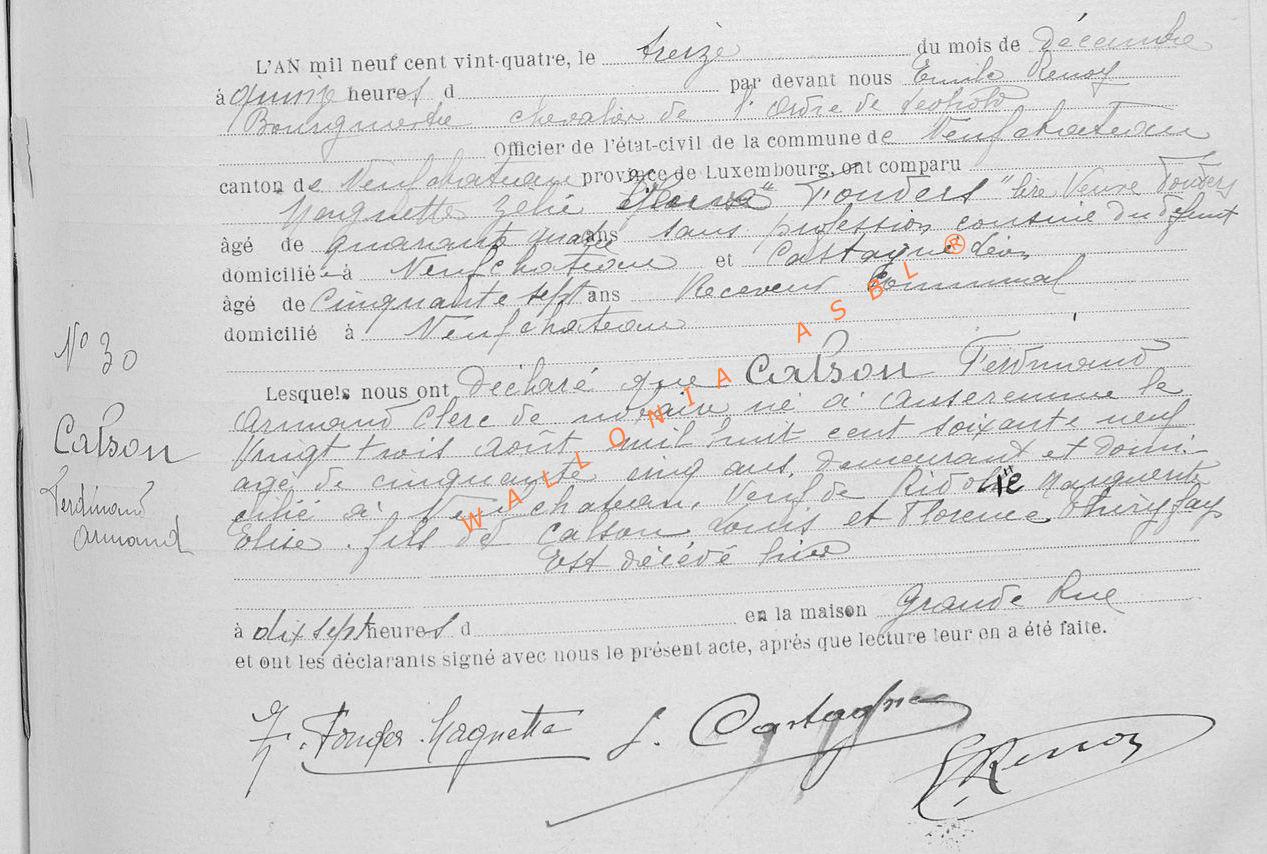 L'AN mil neuf cent vint-quatre, le treize du mois de décembre
à quinze heures d par devant nous Emile Renoy
Bourgmestre chevalier de l'ordre de Léopold
Officier de l'état-civil de la commune de Neufchateau
canton de Neufchateau province de Luxembourg, ont comparu
Magnette Zélie Fonders" lire Veuve Fonders
âgé de quarante quatre ans sans profession cousine du défunt
domicilié à Neufchateau et Castagne Léon
âgé de Cinquante sept ans Receveur Communal
domicilié à Neufchateau
N° 30
Lesquels nous ont déclaré que Calson Ferdinand
Armand Clerc de notaire né à Anseremme le
Vingt trois Août mil huit cent soixante neuf
Calson
agé de cinquante cinq ans, demeurant et domi-
cilié à Neufchateau, Veuf de Marguerite
Ferdinand
Elise. fils de Calson Louis et Florence Thiry fays
Armand
Est décédé hier
à dix sept heures d en la maison Grande Rue
et ont les déclarants signé avec nous le présent acte, après que lecture leur en a été faite.
Z. Fonder Magnette L. Castagne
E Renoy
WALLONIA ASBL ®